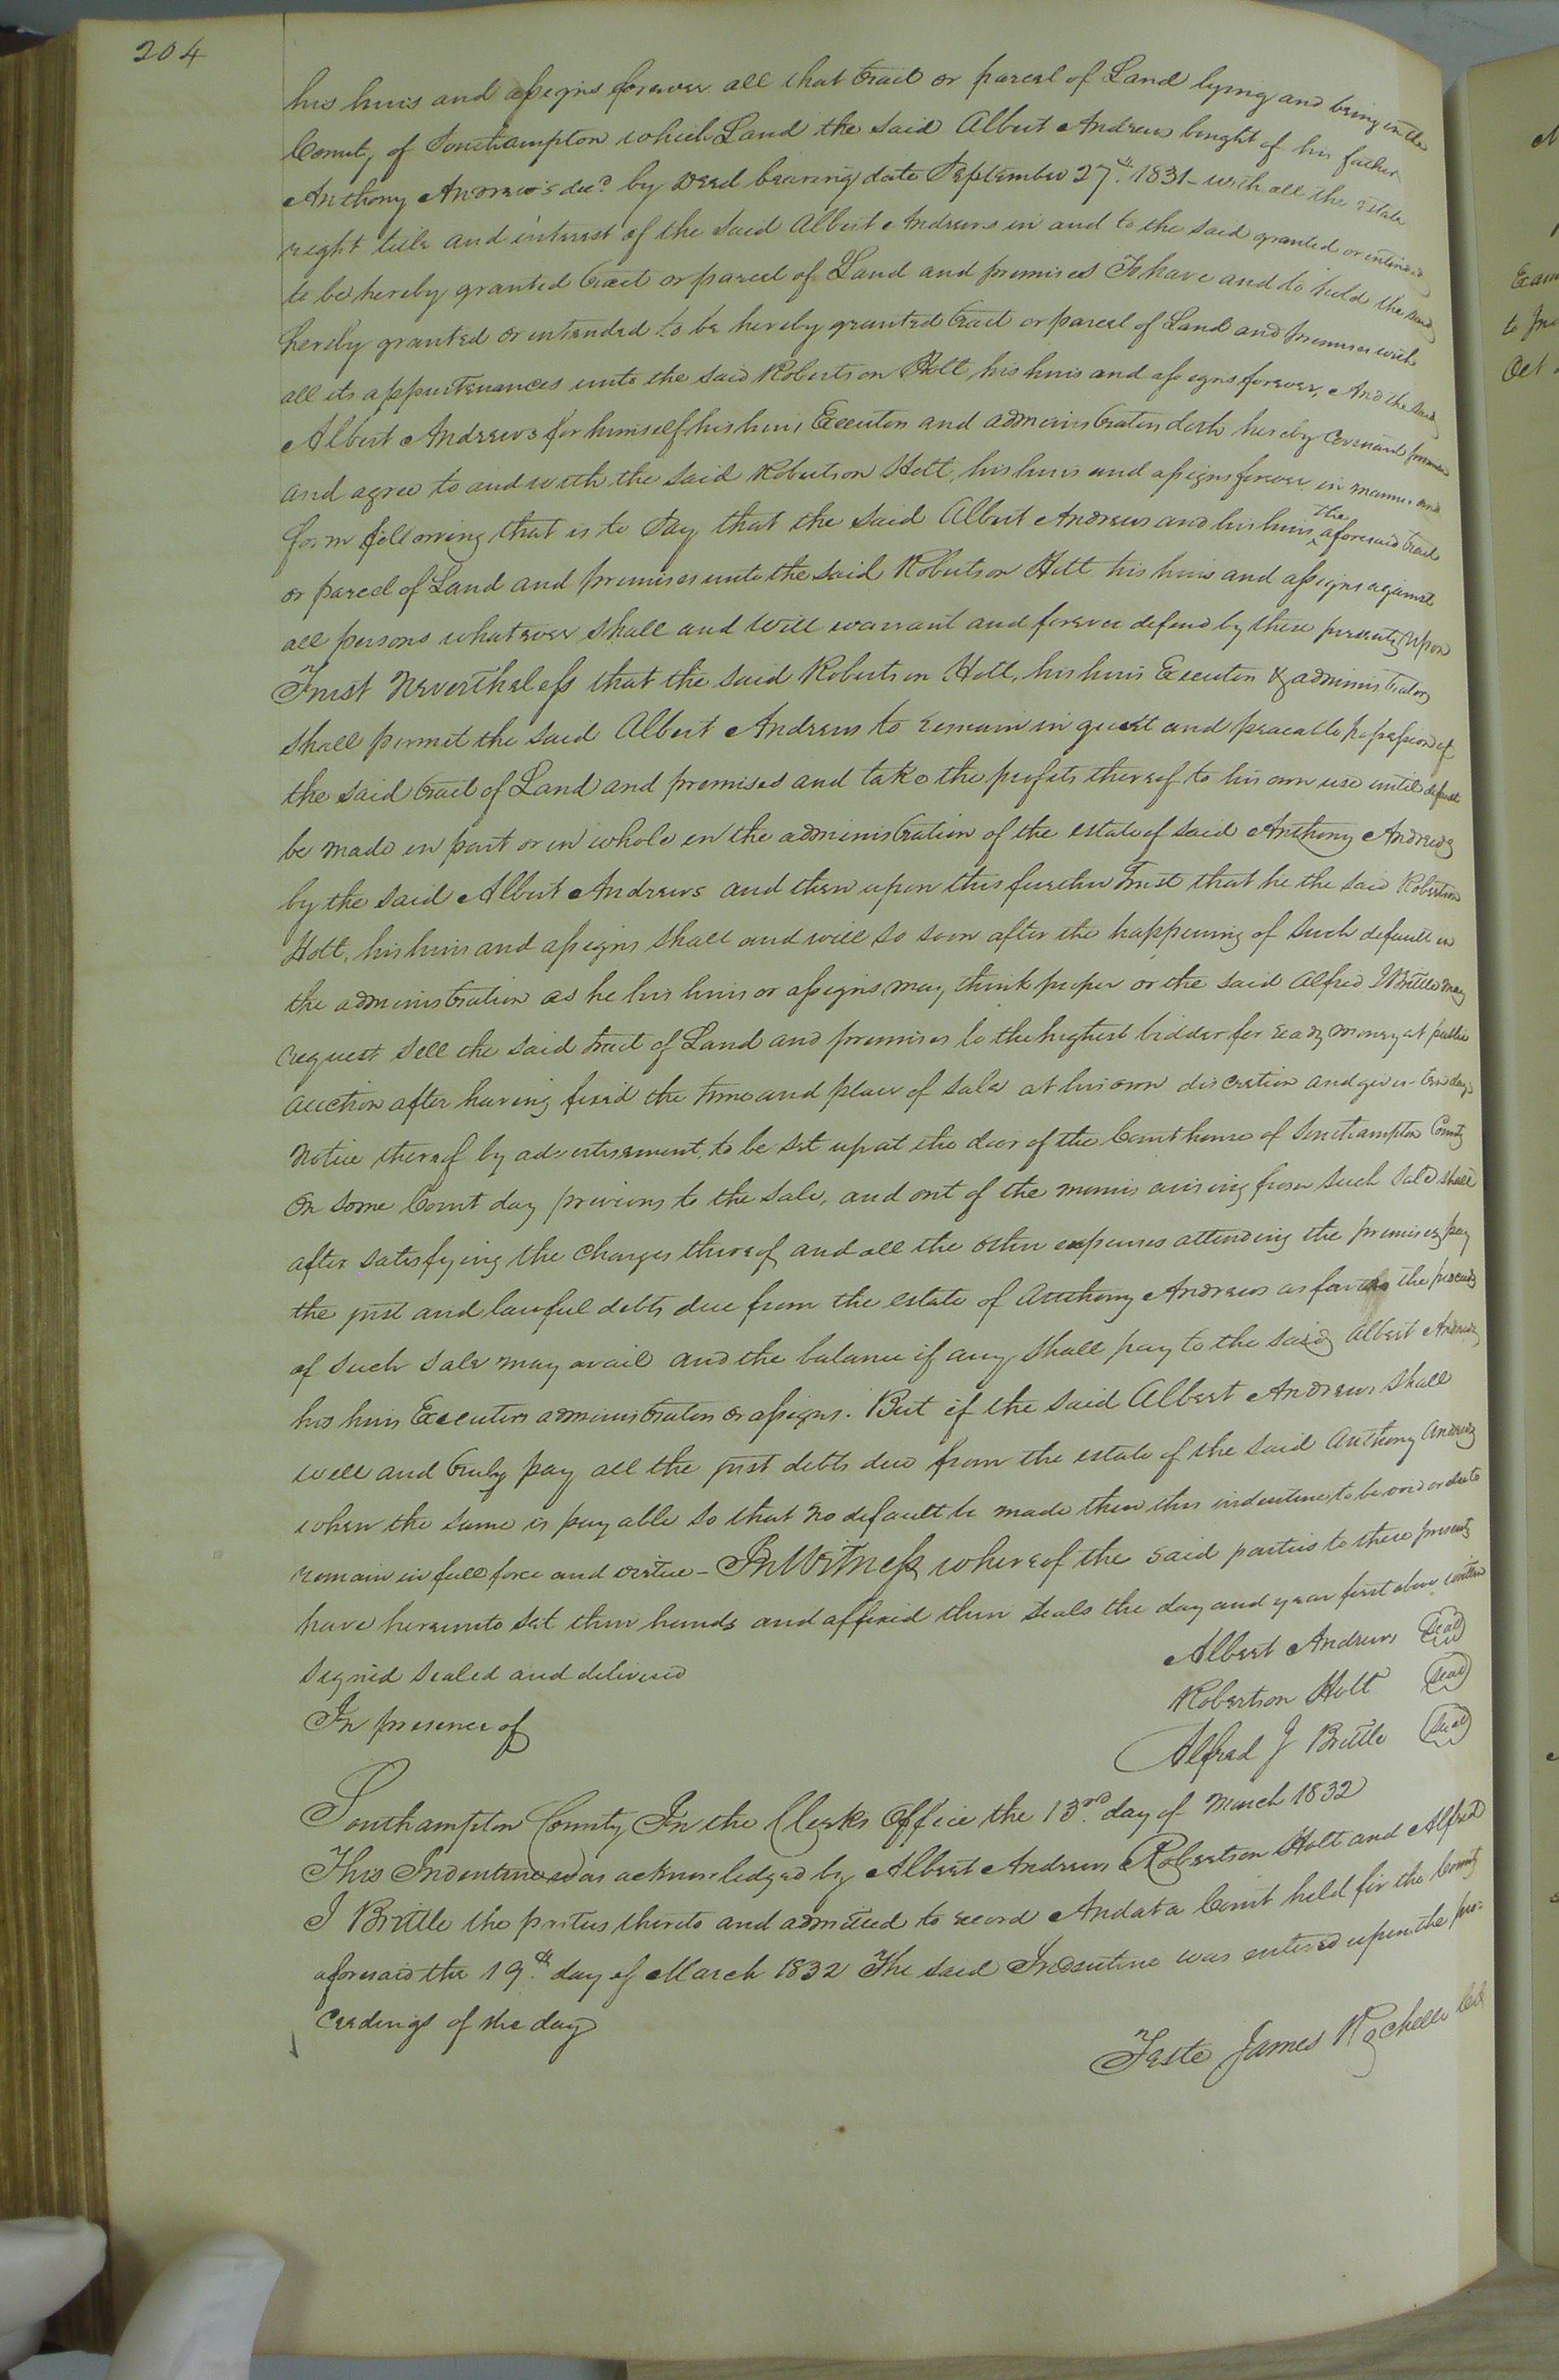 204
his heirs and assigns forever all that tract or parcel of Land lying and being in the
County of Southampton which Land the said Albert Andrews bought of his father
Anthony Andrews decd. by deed bearing date September 27th. 1831 - with all the estate
right title and interest of the said Albert Andrews in and to the said granted or intended
to be hereby granted tract or parcel of Land and premises To have and to hold the said
hereby granted or intended to be hereby granted tract or parcel of Land and premises with
all its appurtenances unto the said Robertson Holt his heirs and assigns forever, And the said
Albert Andrews for himself his heirs Executors and administrators doth hereby Covenant promise
and agree to and with the said Robertson Holt, his heirs and assigns forever in manner and
form following that is to Say, that the said Albert Andrews and his heirs the aforesaid tract
or parcel of Land and premises unto the said Robertson Holt his heirs and assigns against
all persons whatever shall and will warrant and forever defend by these presents, Upon
Trust Nevertheless that the said Robertson Holt, his heirs Executors & administrators
shall permit the said Albert Andrews to remain in quiet and peacable possession of
the said tract of Land and premises and take the profits thereof to his own use until default
be made in part or in whole in the administration of the estate of said Anthony Andrews
by the said Albert Andrews and then upon this further Trust that he the said Robertson
Holt, his heirs and assigns shall and will so soon after the happening of such default in
the administration as he his heirs or assigns may think proper or the said Alfred J Brittle may
request sell the said tract of Land and premises to the highest bidder for ready money at public
auction after having fixed the time and place of sale at his own discretion and given ten days
Notice thereof by advertisement, to be set up at the door of the Court house of Southampton County
on some Court day previous to the sale, and out of the monies arising from such sale shall
after satisfying the charges thereof and all the other expenses attending the premises, pay
the just and lawful debts due from the estate of Anthony Andrews as far as the proceeds
of such sale may avail and the balance if any shall pay to the said Albert Andrews
his heirs Executors administrators or assigns. But if the said Albert Andrews shall
well and truly pay all the just debts due from the estate of the said Anthony Andrews
when the same is payable so that no default be made then this indenture, to be void or else to
remain in full force and virtue - In Witness whereof the said parties to these presents
have hereunto set their hands and affixed their seals the day and year first above written
Signed sealed and delivered
In presence of
Albert Andrews Seal
Robertson Holt Seal
Alfred J Brittle Seal
Southampton County In the Clerks Office the 13rd. day of March 1832
This Indenture was acknowledged by Albert Andrews Robertson Holt and Alfred
J Brittle the parties thereto and admitted to record And at a Court held for the County
aforesaid the 19th. day of March 1832 The said Indenture was entered upon the pro=
ceedings of the day
Teste James Rochelle Clk
to
Oct